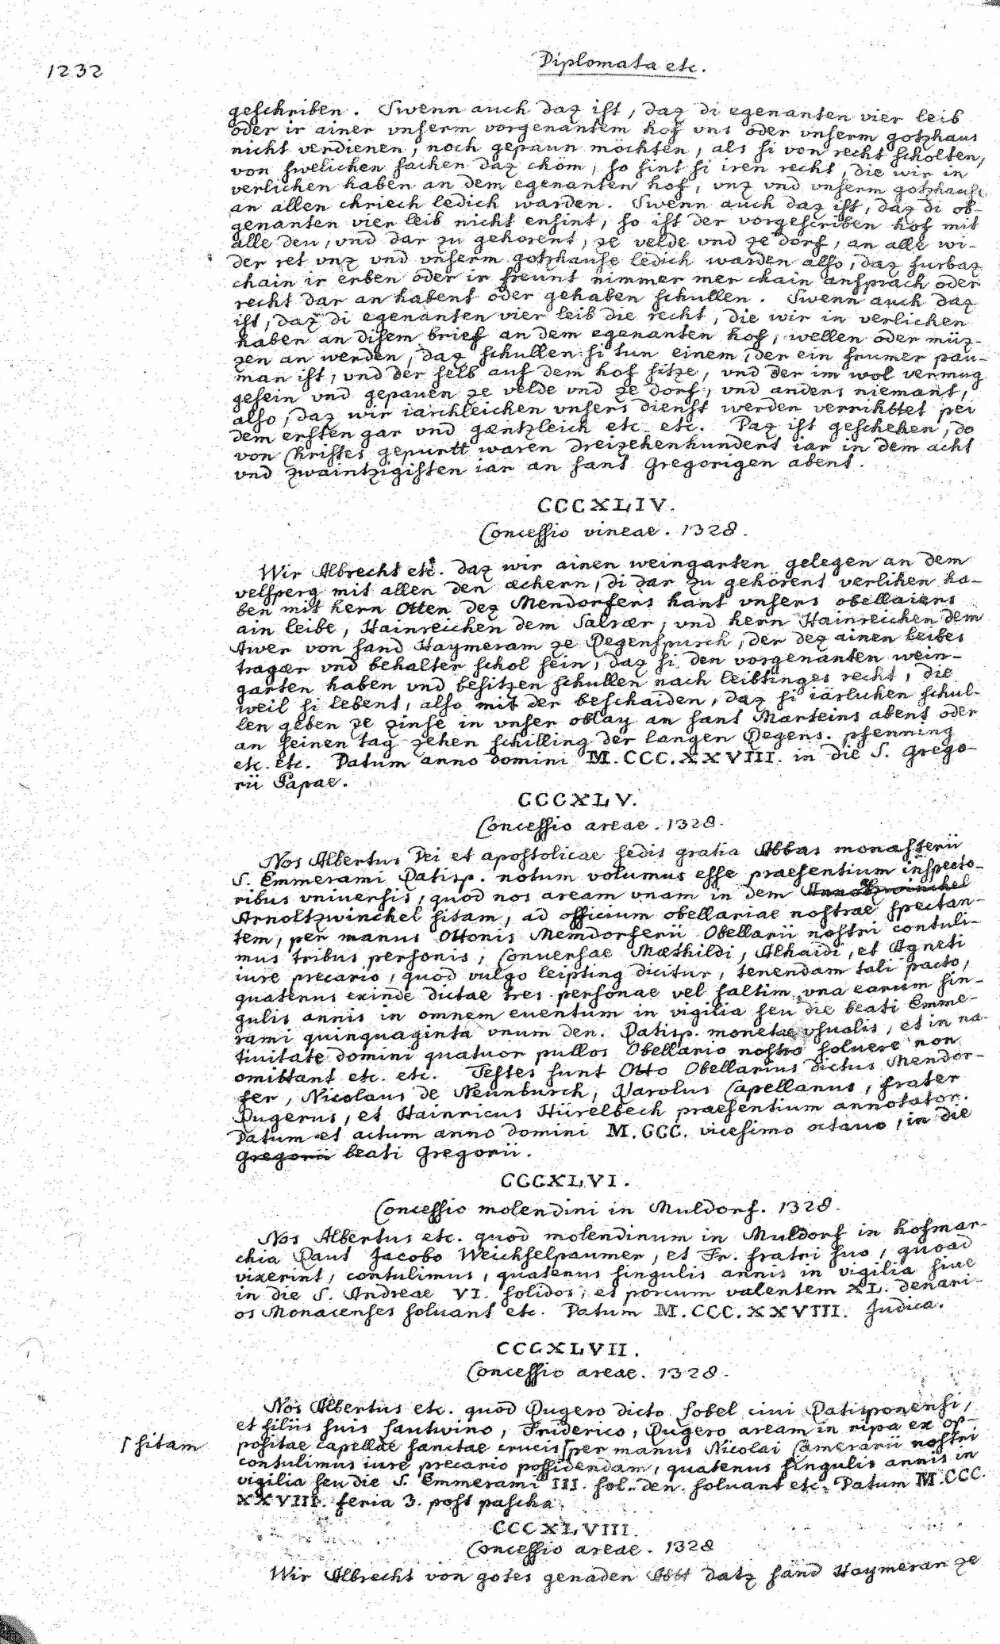 1232
Diplomata etc.
geschriben. Swenn auch daz ist, daz di egenanten vier leib
oder ir ainer vnserm vorgenantem hof vns oder vnserm gotzhaus
nicht verdienen, noch gepaun möchten, als si von recht scholten,
von swelichen sachen daz chöm, so sint si iren recht, die wir in
verlichen haben an dem egenanten hof, vnz vnd vnserm gotzhause
an allen chriech ledich warden. Swenn auch daz ist, daz di ob-
genanten vier leib nicht ensint, so ist der vorgescriben hof mit
alle deu, vnd dar zu gehorent, ze velde vnd ze dorf, an alle wi-
der ret vnz vnd vnserm gotzhause ledich warden also, daz furbaz
chain ir erben oder ir freunt nimmer mer chain ansprach oder
recht dar an habent oder gehaben schullen. Swenn auch daz
ist, daz di egenanten vier leib die recht, die wir in verlichen
haben an disem brief an dem egenanten hof, wellen oder müz-
zen an werden, daz schullen si tun einem, der ein frumer pau-
man ist, vnd der selb auf dem hof sitze, vnd der im wol vermug
gesein vnd gepauen ze velde vnd ze dorf, vnd anders niemant,
also, daz wir iarichleichen vnsers dienst werden verrihttet pei
dem ersten gar vnd gæntzleich etc. etc. Daz ist geschehen, do
von Christes gepurtt waren dreizehenhundert iar in dem acht
vnd zwaintzigisten iar an sant Gregorigen abent.
CCCXLIV.
Concessio vineae. 1328.
Wir Albrecht etc. daz wir ainen weingarten gelegen an dem
velsperg mit allen den æchern, di dar zu gehörent verlihen ha-
ben mit hern Otten dez Mendorfers hant vnsers obellaiers
ain leibe, Hainreichen dem Salvær, vnd hern Hainreichen dem
Awer von sand Haymeram ze Regenspurch, der dez ainen leibes
tragær vnd behalter schol sein, daz si den vorgenanten wein-
garten haben vnd besitzen schullen nach leibtinges recht, die
weil si lebent, also mit der beschaiden, daz si iärlichen schul-
len geben ze zinse in vnser oblay an sant Marteins abent oder
an seinen tag zehen schilling der langen Regens. pfenning
etc. etc. Datum anno domini M.CCC.XXVIII. in die S. Grego-
rii Papae.
CCCXLV.
Concessio areae. 1328.
Nos Albertus Dei et apostolicae sedis gratia Abbas monasterii
S. Emmerami Ratisp. notum volumus esse praesentium inspecto-
ribus vniversis, quod nos aream vnam in dem
Arnoltzwinckel sitam, ad officium obellariae nostrae spectan-
tem, per manus Ottonis Memdorferii Obellarii nostri contuli-
mus tribus personis, Conversae Mæthildi, Alhaidi, et Agneti
iure precario, quod vulgo leipting dicitur, tenendam tali pacto,
quatenus exinde dictae tres personae vel saltim vna earum sin-
gulis annis in omnem euentum in vigilia seu die beati Emme-
rami quinquaginta vnum den. Ratisp. monetae vsualis, et in na-
tiuitate domini quatuor pullos Obellario nostro soluere non
omittant etc. etc. Testes sunt Otto Obellarius dictus Mendor-
fer, Nicolaus de Neunburch, Karolus Capellanus, frater
Rugerus, et Hainricus Hürelbech praesentium annotator.
Datum et actum anno domini M.CCC. vicesimo octauo, in die
Gregorii beati Gregorii.
CCCXLVI.
Concessio molendini in Muldorf. 1328.
Nos Albertus etc. quod molendinum in Muldorf in hofmar-
chia Raut Jacobo Weichselpaumer, et Fr. fratri suo, quoad
vixerint, contulimus, quatenus singulis annis in vigilia siue
in die S. Andreae VI. solidos, et porcum valentem XL. denari-
os Monacenses soluant etc. Datum M.CCC.XXVIII. Judica.
CCCXLVII.
Concessio areae. 1328.
Nos Albertus etc. quod Rugero dicto Sobel ciui Ratisponensi,
et filiis suis Gautwino, Friderico, Rugero aream in ripa ex op-
⌠sitam
positae capellae sanctae crucis ⌠per manus Nicolai Camerarii nostri
contulimus iure precario possidendam, quatenus singulis annis in
vigilia seu die S. Emmerami III. sol. den. soluant etc. Datum M.CCC.
XXVIII. feria 3. post pascha.
CCCXLVIII.
Concessio areae. 1328
Wir Albrecht von gotes genaden Abbt datz sand Haymeran ze